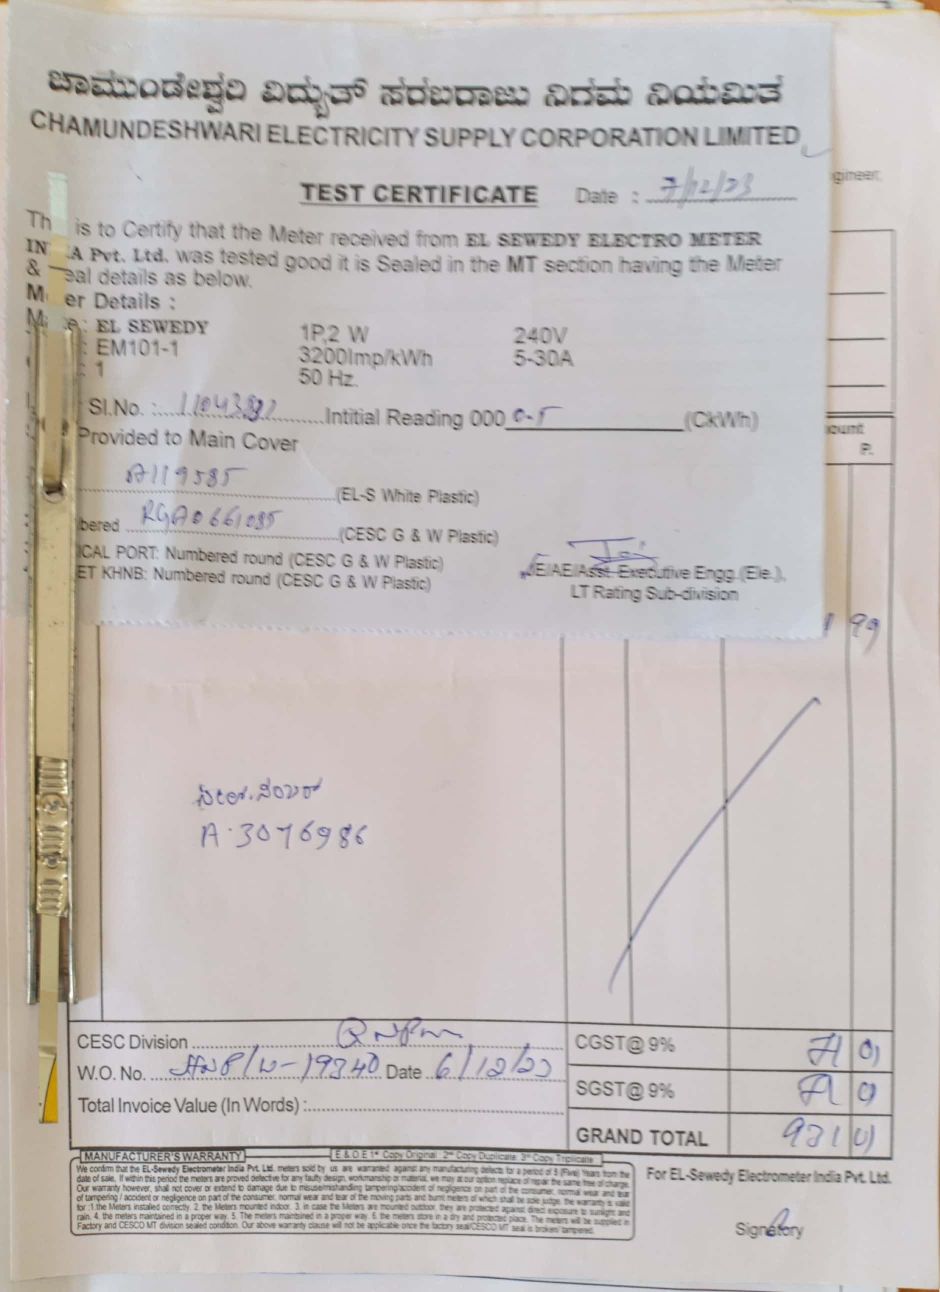 ಚಾಮುಂಡೇಶ್ವರಿ ವಿದ್ಯುತ್ ಸರಬರಾಜು ನಿಗಮ ನಿಯಮಿತ
CHAMUNDESHWARI ELECTRICITY SUPPLY CORPORATION LIMITED
gineer.
TEST CERTIFICATE Date : 7/12/23
Th is to Certify that the Meter received from EL SEWEDY ELECTRO METER
IN A Pvt. Ltd. was tested good it is Sealed in the MT section having the Meter
& eal details as below.
M er Details :
M e: EL SEWEDY 1P,2 W 240V
: EM101-1 3200Imp/kWh 5-30A
: 1 50 Hz.
Sl.No. : Intitial Reading 000 0-5 (CkWh)
Provided to Main Cover
ount
P.
A119585 (EL-S White Plastic)
bered RGA0661085 (CESC G & W Plastic)
ICAL PORT: Numbered round (CESC G & W Plastic)
ET KHNB: Numbered round (CESC G & W Plastic)
JE/AE/Asst. Executive Engg.(Ele.),
LT Rating Sub-division
99
A-3076986
CESC Division CGST@ 9%
W.O. No. Date 6/12/23
SGST@ 9%
Total Invoice Value (In Words) :
GRAND TOTAL 931
MANUFACTURER'S WARRANTY E & O E 1st Copy Original 2nd Copy Duplicate 3rd Copy Triplicate
We confirm that the EL-Sewedy Electrometer India Pvt. Ltd. meters sold by us are warranted against any manufacturing defects for a period of 5 (Five) Years from the
date of sale. If within this period the meters are proved defective for any faulty design, workmanship or material, we may at our option replace of repair the same free of charge.
Our warranty however, shall not cover or extend to damage due to misuse/mishandling tampering/accident of negligence on part of the consumer, normal wear and tear
of tampering / accident or negligence on part of the consumer, normal wear and tear of the moving parts and burnt meters of which shall be sole judge. the warranty is valid
for :1.the Meters installed correctly. 2. the Meters mounted indoor. 3. in case the Meters are mounted outdoor, they are protected against direct exposure to sunlight and
rain. 4. the meters maintained in a proper way. 5. The meters maintained in a proper way. 6. the meters store in a dry and protected place. The meters will be supplied in
Factory and CESCO MT division sealed condition. Our above warranty clause will not be applicable once the factory seal/CESCO MT seal is broken/ tampered.
For EL-Sewedy Electrometer India Pvt. Ltd.
Signatory